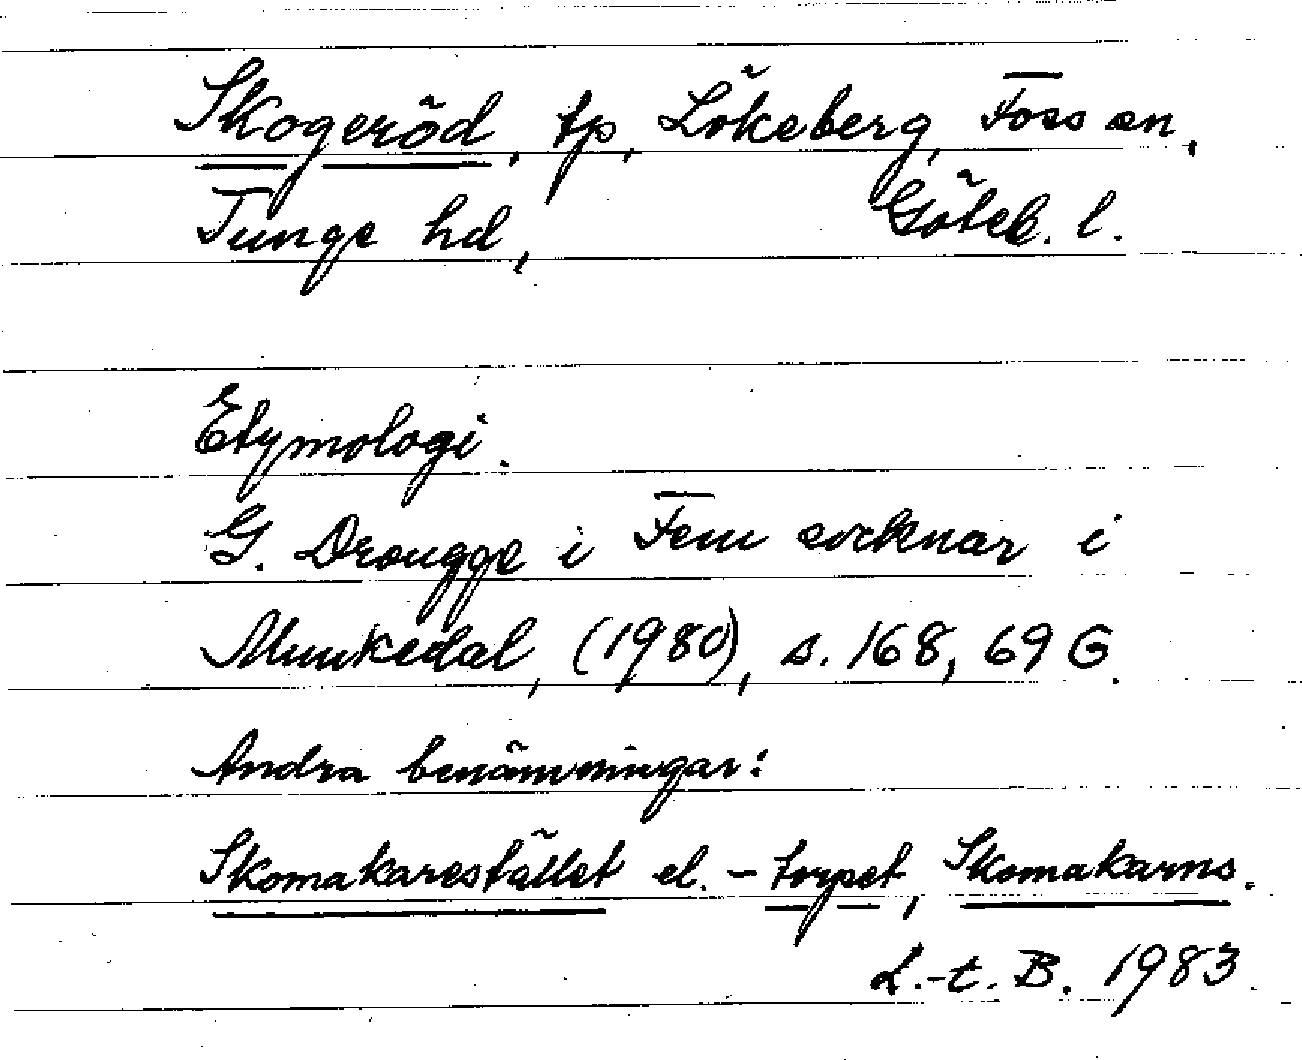 Skogeröd, tp, Lökeberg, Foss sn,
Tunge hd, Göteb. l.
Etymologi.
G. Drougge i Fem socknar i
Munkedal, (1980), s. 168, 69 G.
Andra benämningar:
Skomakarestället el. -torpet, Skomakarns.
L.-t. B. 1983.